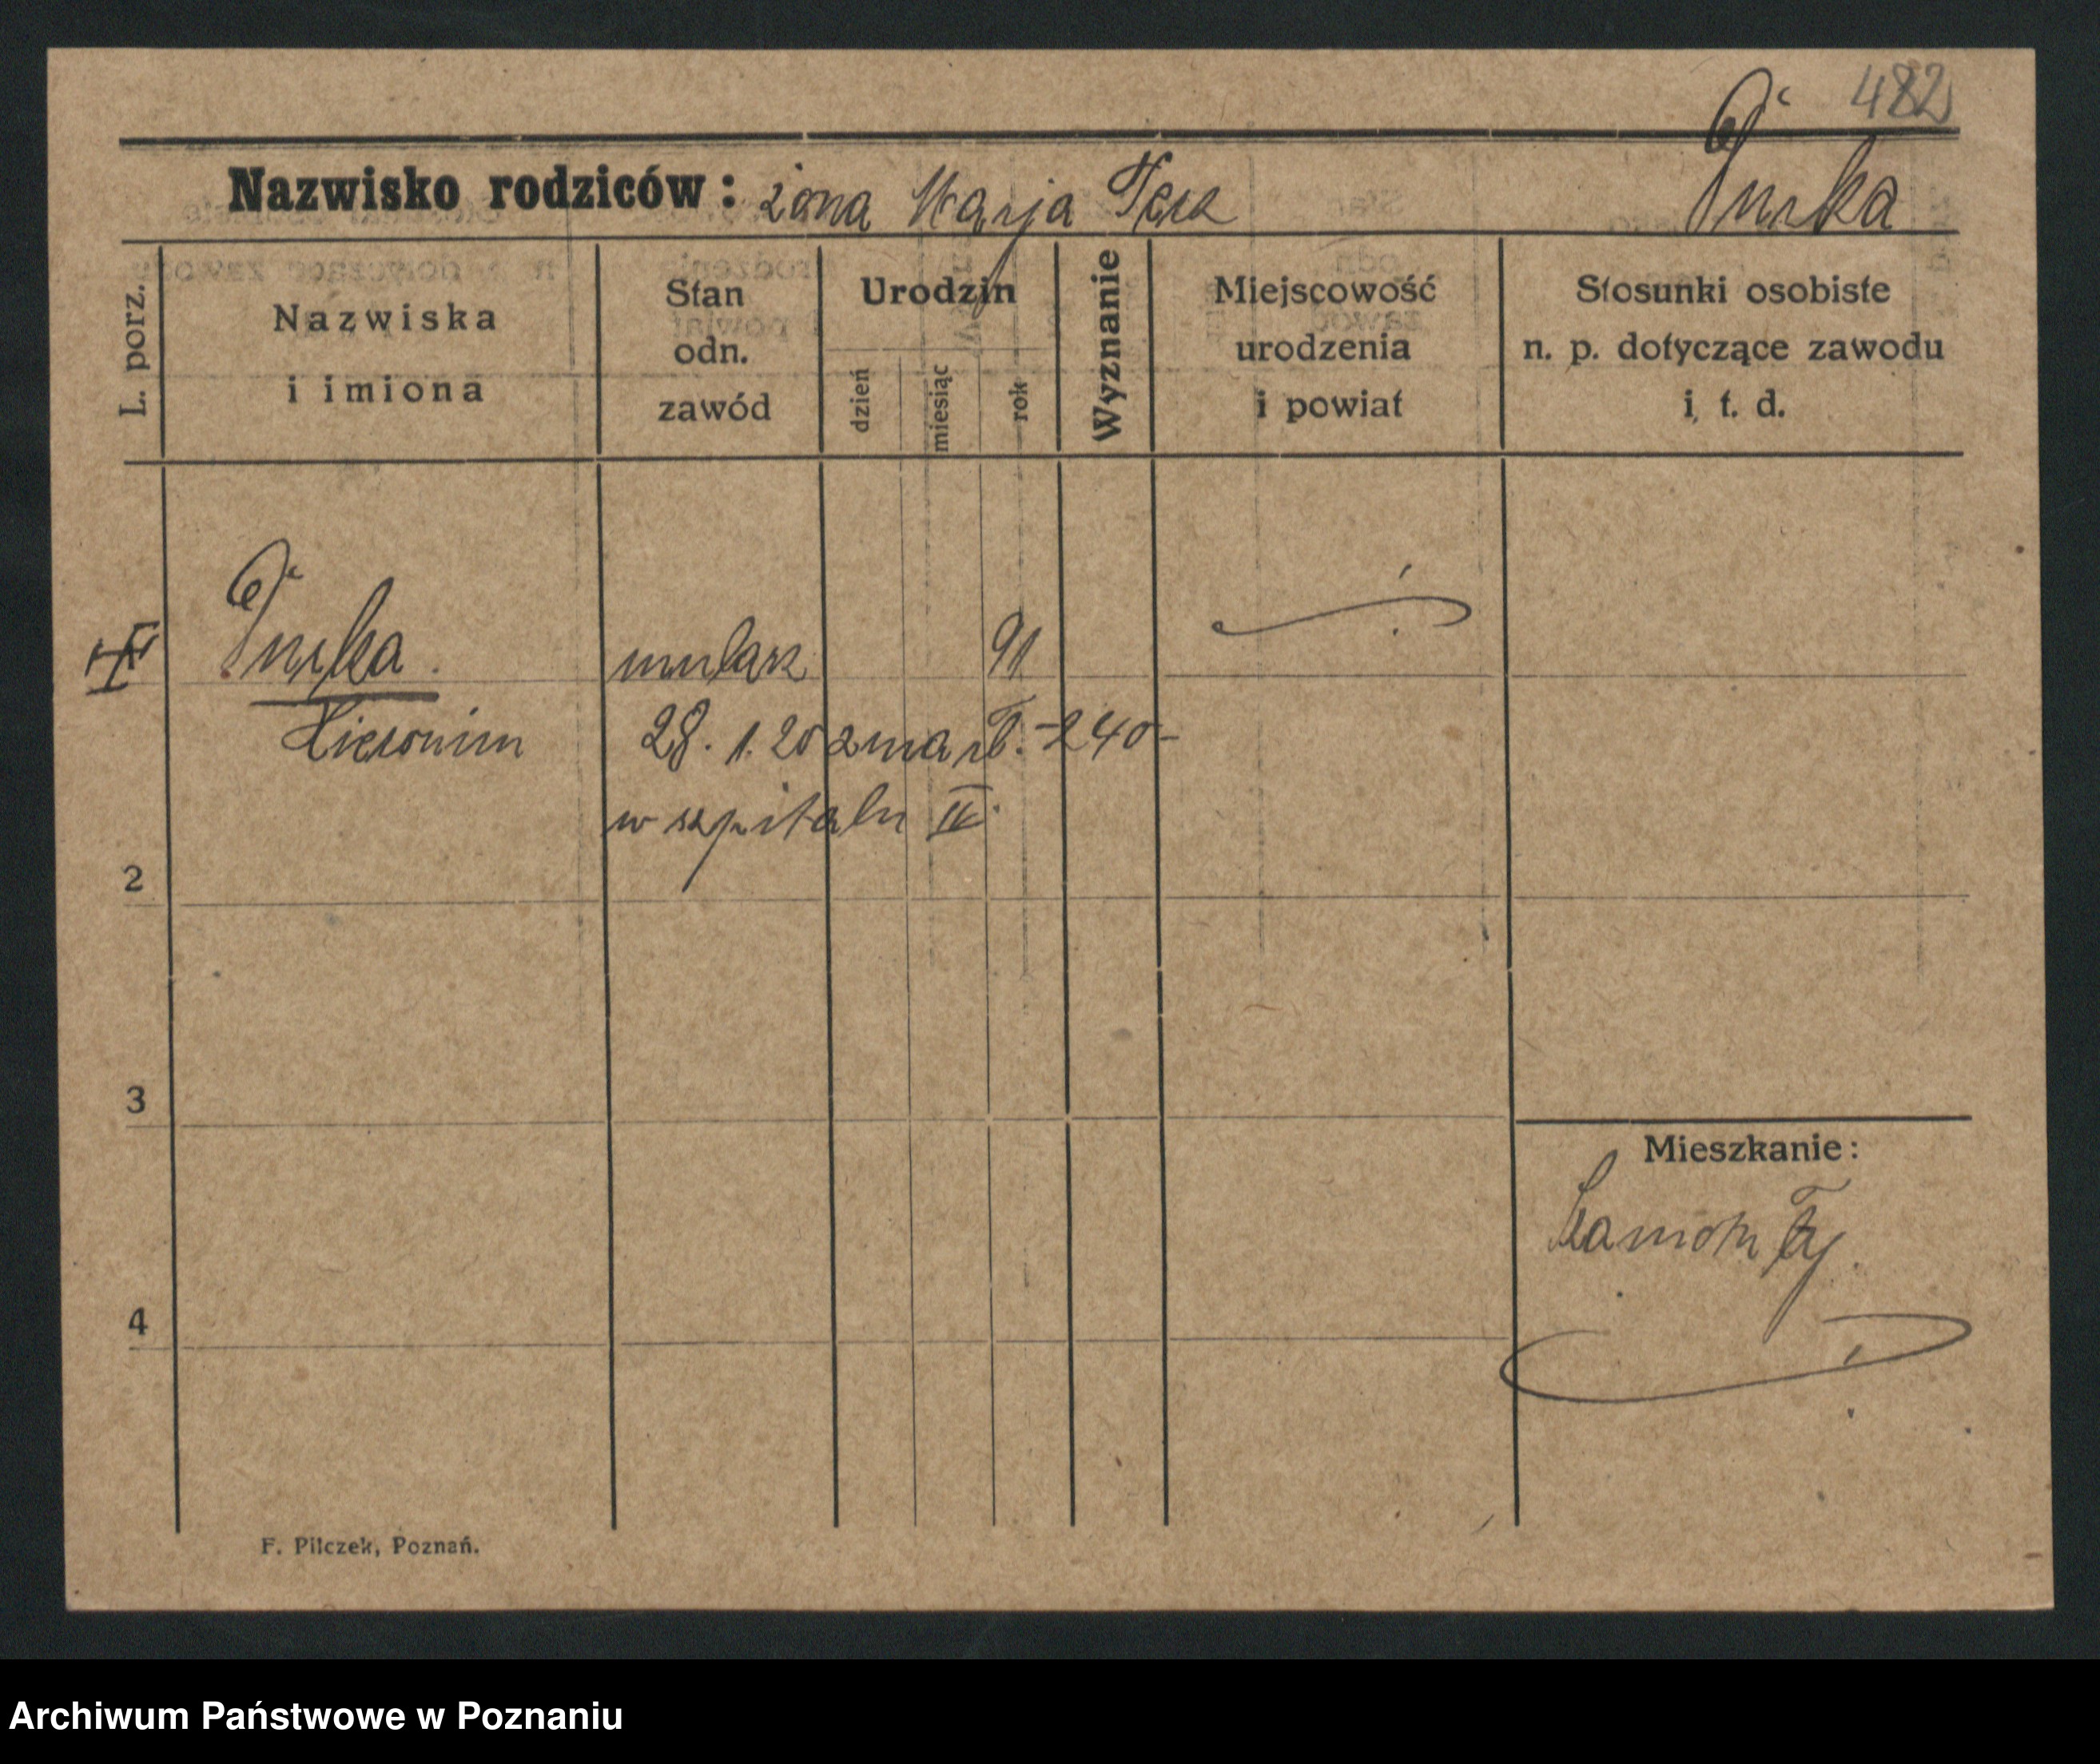 482
Nazwisko rodziców: żona Marja Purka
L. porz.
Nazwiska
i imiona
Stan
odn.
zawód
Urodzin
dzień
miesiąc
rok
Wyznanie
Miejscowość
urodzenia
i powiat
Stosunki osobiste
n. p. dotyczące zawodu
i t. d.
Purka mularz 91
Hieronim 28. 1. 20 zmarł. -240-
w szpitalu II.
2
3
Mieszkanie:
Szamotuły
4
F. Pilczek, Poznań.
Archiwum Państwowe w Poznaniu